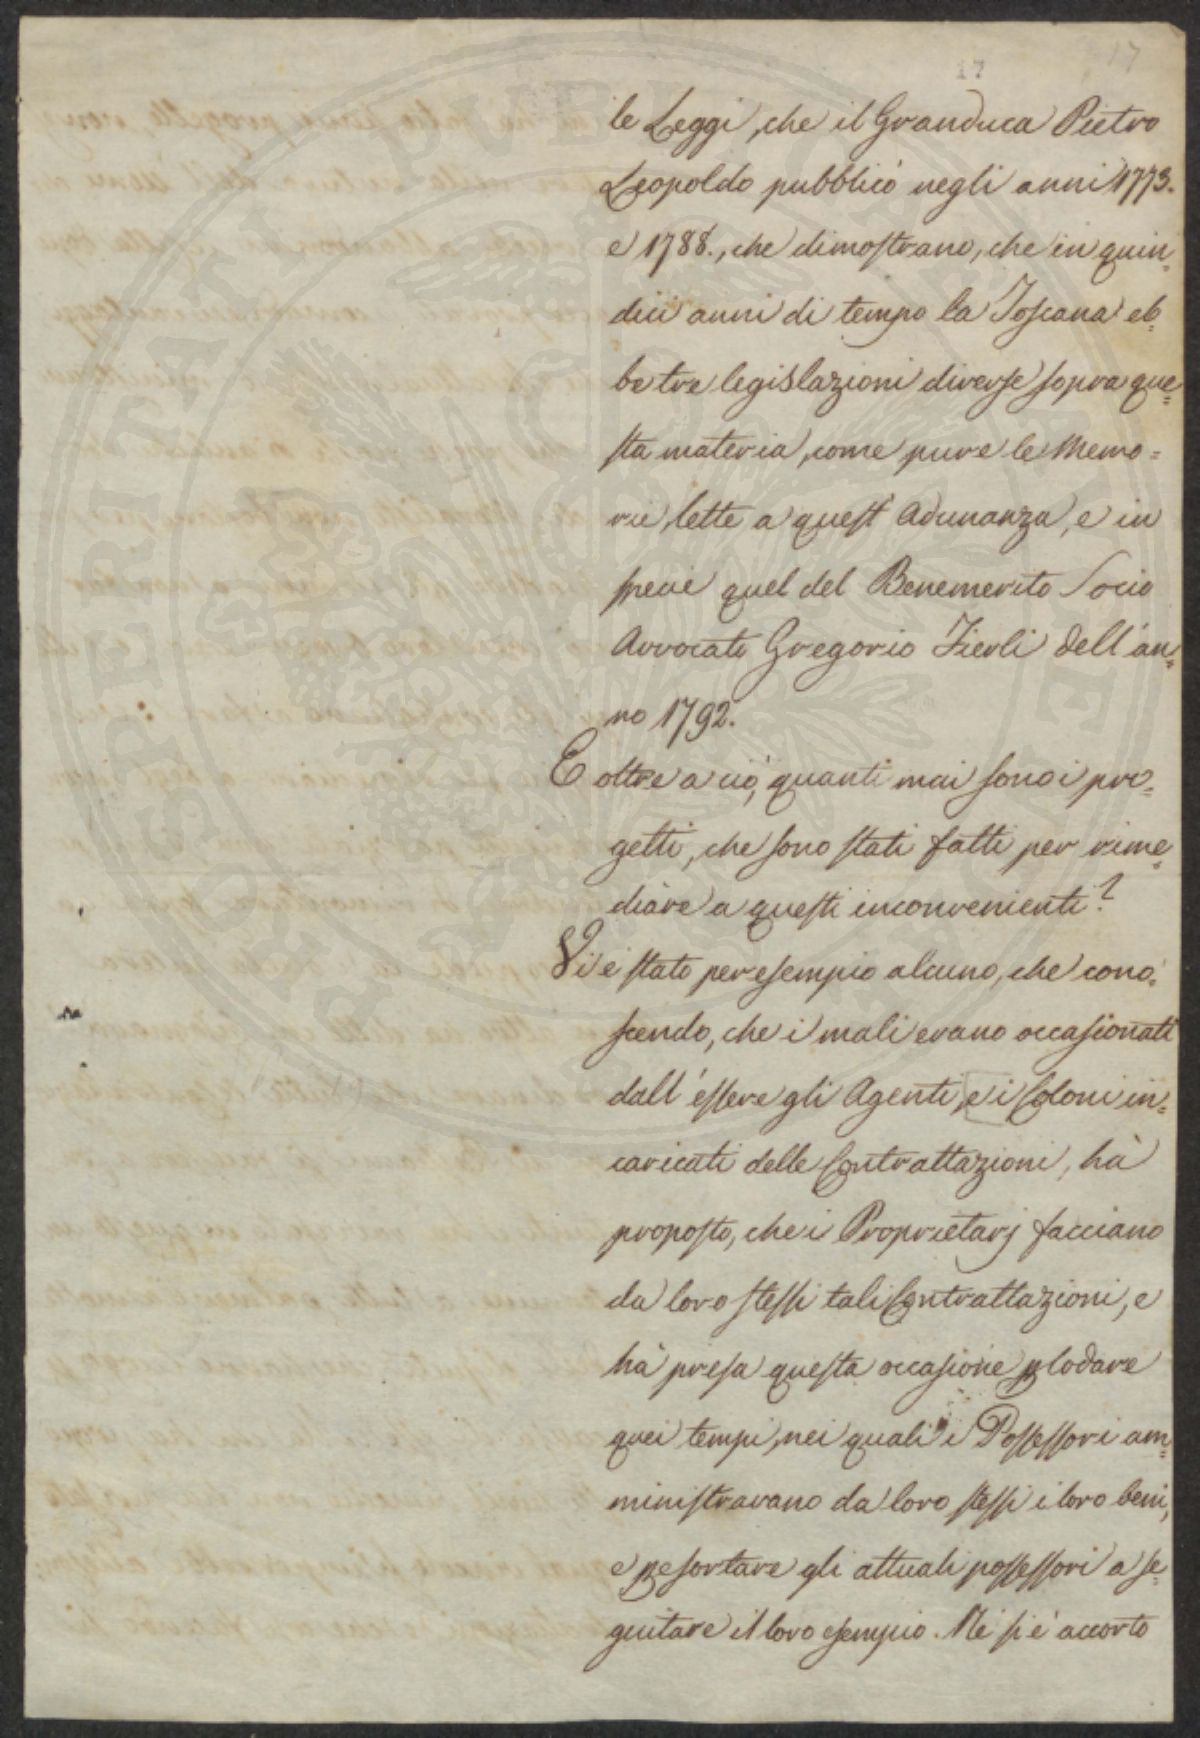 17
17
le Leggi, che il Granduca Pietro
Leopoldo pubblicò negli anni 1773.
e 1788., che dimostrano, che in quin=
dici anni di tempo la Toscana eb=
be tre legislazioni diverse sopra que=
sta materia, come pure le Memo=
rie, lette a quest' Adunanza, e in
specie quel del Benemerito Socio
Avvocato Gregorio Fierli dell'an=
no 1792.
E oltre a ciò, quanti mai sono i pro=
getti, che sono stati fatti per rime=
diare a questi inconvenienti?
Vi è stato per esempio alcuno, che cono=
scendo, che i mali erano occasionati
dall'essere gli Agenti, e i Coloni in=
caricati delle Contrattazioni, hà
proposto, che i Proprietarj facciano
da loro stessi tali Contrattazioni, e
hà presa questa occasione p lodare
quei tempi, nei quali i Possessori am=
ministravano da loro stessi i loro beni,
e p esortare gli attuali possessori a se=
guitare il loro esempio. Nè si è accorto
PROSPERITATI PUBLICAE AUGENDAE